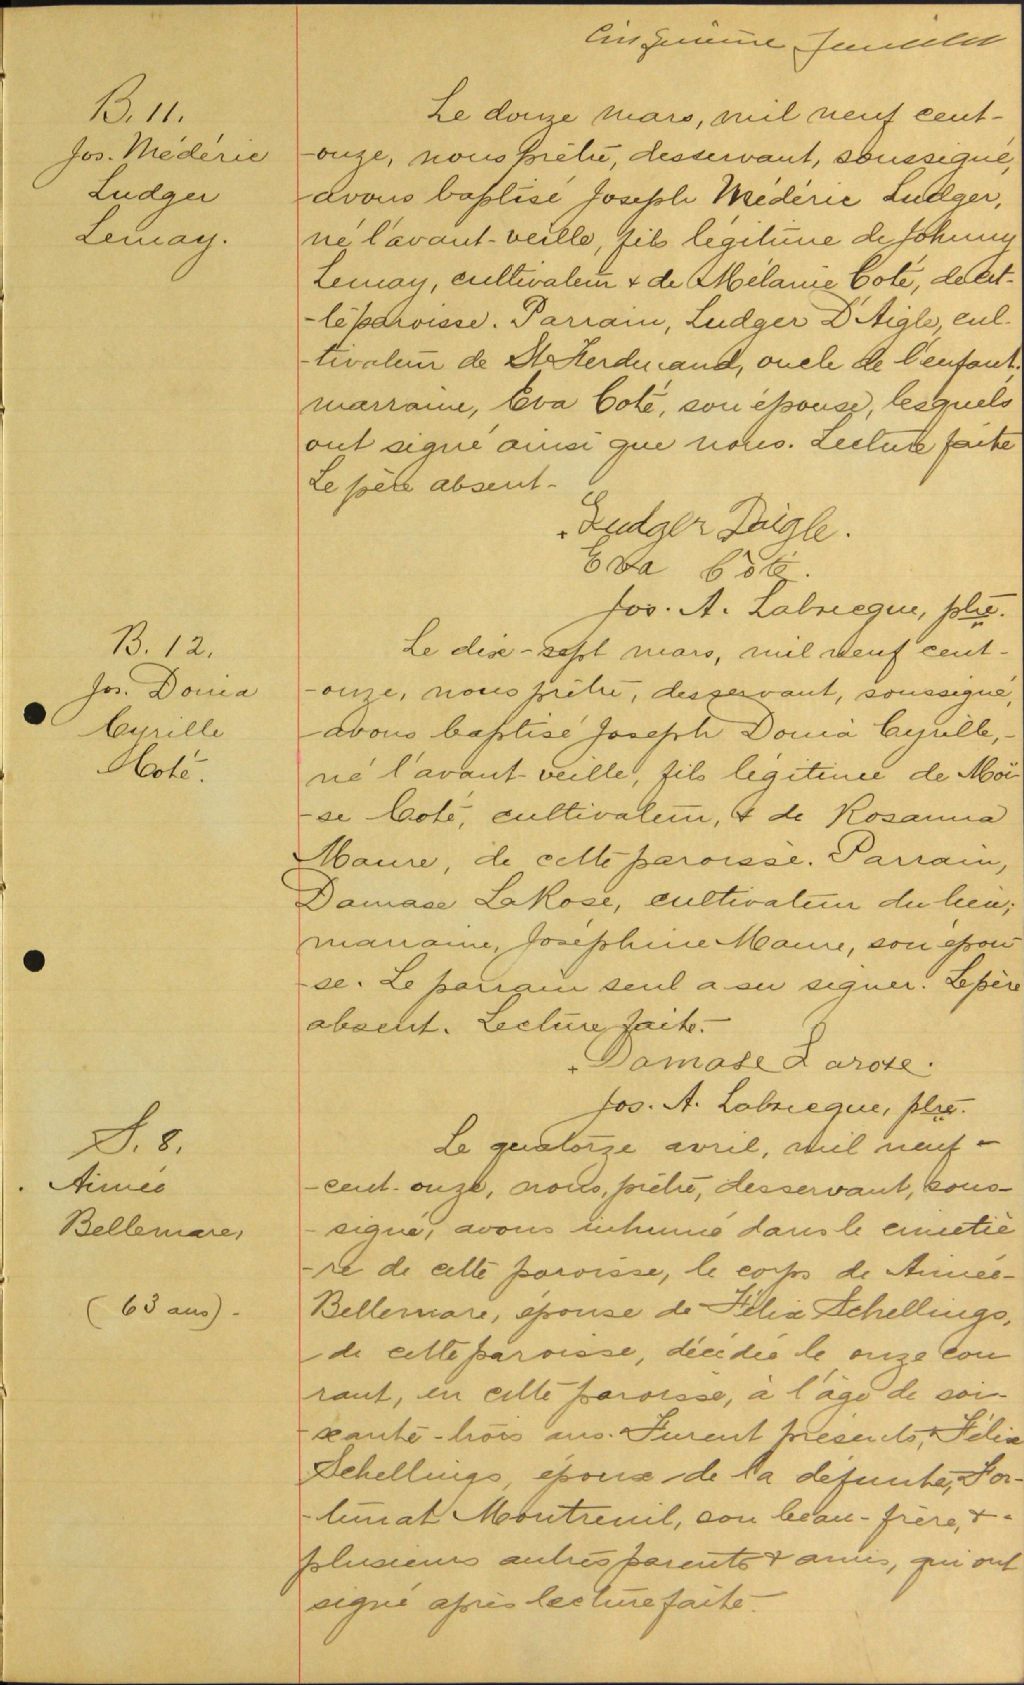 Cinquième feuillet
B. 11.
Jos. Médéric
Ludger
Lemay.
Le douze mars, mil neuf cent-
-onze, nous prêtre, desservant, soussigné,
avons baptisé Joseph Médéric Ludger,
né l'avant-veille, fils légitime de Johnny
Lemay, cultivateur & de Mélanie Coté, de cet-
-te paroisse. Parrain, Ludger D'Aigle, cul-
-tivateur de St Ferdinand, oncle de l'enfant;
marraine, Eva Coté, son épouse, lesquels
ont signé ainsi que nous. Lecture faite
Le père absent-
+ Ludger Daigle.
Eva Côté.
Jos. A. Labrecque, ptre.
B. 12.
Jos. Donia
Cyrille
Coté.
Le dix-sept mars, mil neuf cent-
-onze, nous prêtre, desservant, soussigné,
avons baptisé Joseph Donia Cyrille,-
né l'avant-veille, fils légitime de Moï-
-se Coté, cultivateur, & de Rosanna
Maure, de cette paroisse. Parrain,
Damase LaRose, cultivateur du lieu;
marraine, Joséphine Maure, son épou-
-se. Le parrain seul a su signer. Le père
absent. Lecture faite.-
+ Damase Larose.
Jos. A. Labrecque, ptre.
S. 8.
Aimée
Bellemare,
(63 ans)-
Le quatorze avril, mil neuf-
-cent-onze, nous, prêtre, desservant, sous-
-signé, avons inhumé dans le cimetiè
-re de cette paroisse, le corps de Aimée-
Bellemare, épouse de Félix Schellings,
de cette paroisse, décédée le onze cou
rant, en cette paroisse, à l'âge de soi-
-xante-trois ans. Furent présents, Félix
Schellings, époux de la défunte, For-
-tunat Montreuil, son beau-frère, &-
plusieurs autres parents & amis, qui ont
signé après lecture faite-